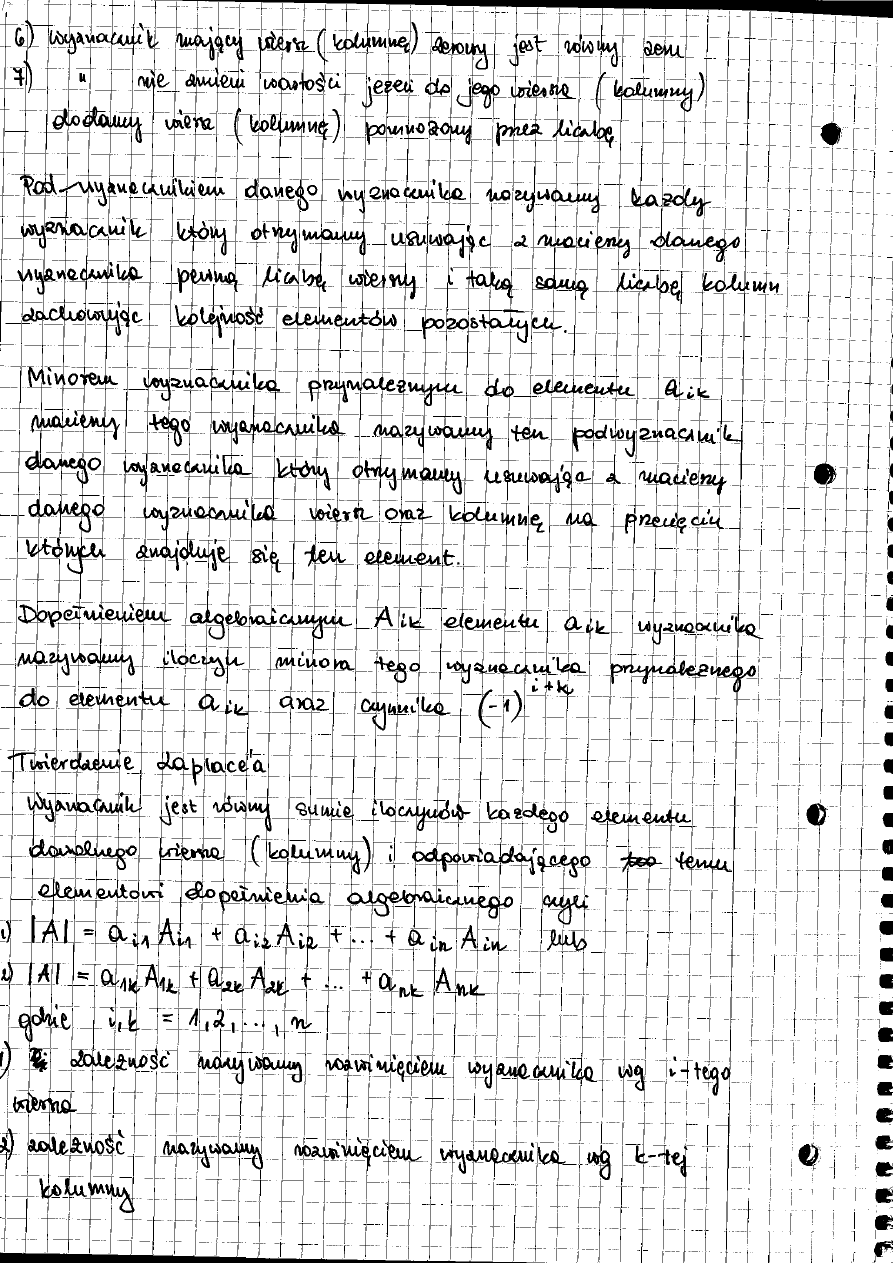 6) Wyznacznik mający wiersz (kolumnę) zerowy jest równy zeru
7) " nie zmieni wartości jeżeli do jego wiersza (kolumny)
dodamy wiersz (kolumnę) pomnożony przez liczbę
Pod-wyznacznikiem danego wyznacznika nazywamy każdy
wyznacznik który otrzymamy usuwając z macierzy danego
wyznacznika pewną liczbę wierszy i taką samą liczbę kolumn
zachowując kolejność elementów pozostałych.
Minorem wyznacznika przynależnym do elementu a_{ik}
macierzy tego wyznacznika nazywamy ten podwyznacznik
danego wyznacznika który otrzymamy usuwając z macierzy
danego wyznacznika wiersz oraz kolumnę na przecięciu
których znajduje się ten element.
Dopełnieniem algebraicznym A_{ik} elementu a_{ik} wyznacznika
nazywamy iloczyn minora tego wyznacznika przynależnego
do elementu a_{ik} oraz czynnika (-1)^{i+k}
Twierdzenie Laplace'a
Wyznacznik jest równy sumie iloczynów każdego elementu
dowolnego wiersza (kolumny) i odpowiadającego temu
elementowi dopełnienia algebraicznego czyli
1) |A| = a_{i1} A_{i1} + a_{i2} A_{i2} + ... + a_{in} A_{in} lub
2) |A| = a_{1k} A_{1k} + a_{2k} A_{2k} + ... + a_{nk} A_{nk}
gdzie i,k = 1,2,...,n
1) zależność nazywamy rozwinięciem wyznacznika wg i-tego
wiersza
2) zależność nazywamy rozwinięciem wyznacznika wg k-tej
kolumny